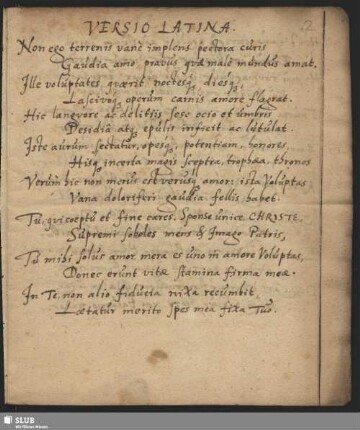 2
VERSIO LATINA.
Non ego terrenis vane implens pectora curis
Gaudia amo pravus quæ male mundus amat.
Ille voluptates quærit noctesq, diesq,
Lascivoq, operum carnis amore flagrat.
Hic languore ac delitiis sese ocio et umbris
Desidia atq, epulis inficit ac lutulat.
Iste aurum sectatur, opesq, potentiam, honores,
Hisq, incerta magis sceptra, trophæa, thronos
Verum hic non meus est verusq, amor: ista Voluptas
Vana doloriferi gaudia fellis habet.
Tu, qui coeptu et fine cares, Sponse unice CHRISTE,
Supremi soboles mens & Imago Patris,
Tu mihi solus amor, mera es uno in̄ amore Voluptas,
Donec erunt vitæ stamina firma meæ.
In Te non alio fiducia nixa recumbit
Lætatur merito spes mea fixa Tuo.
SLUB
Wir führen Wissen.